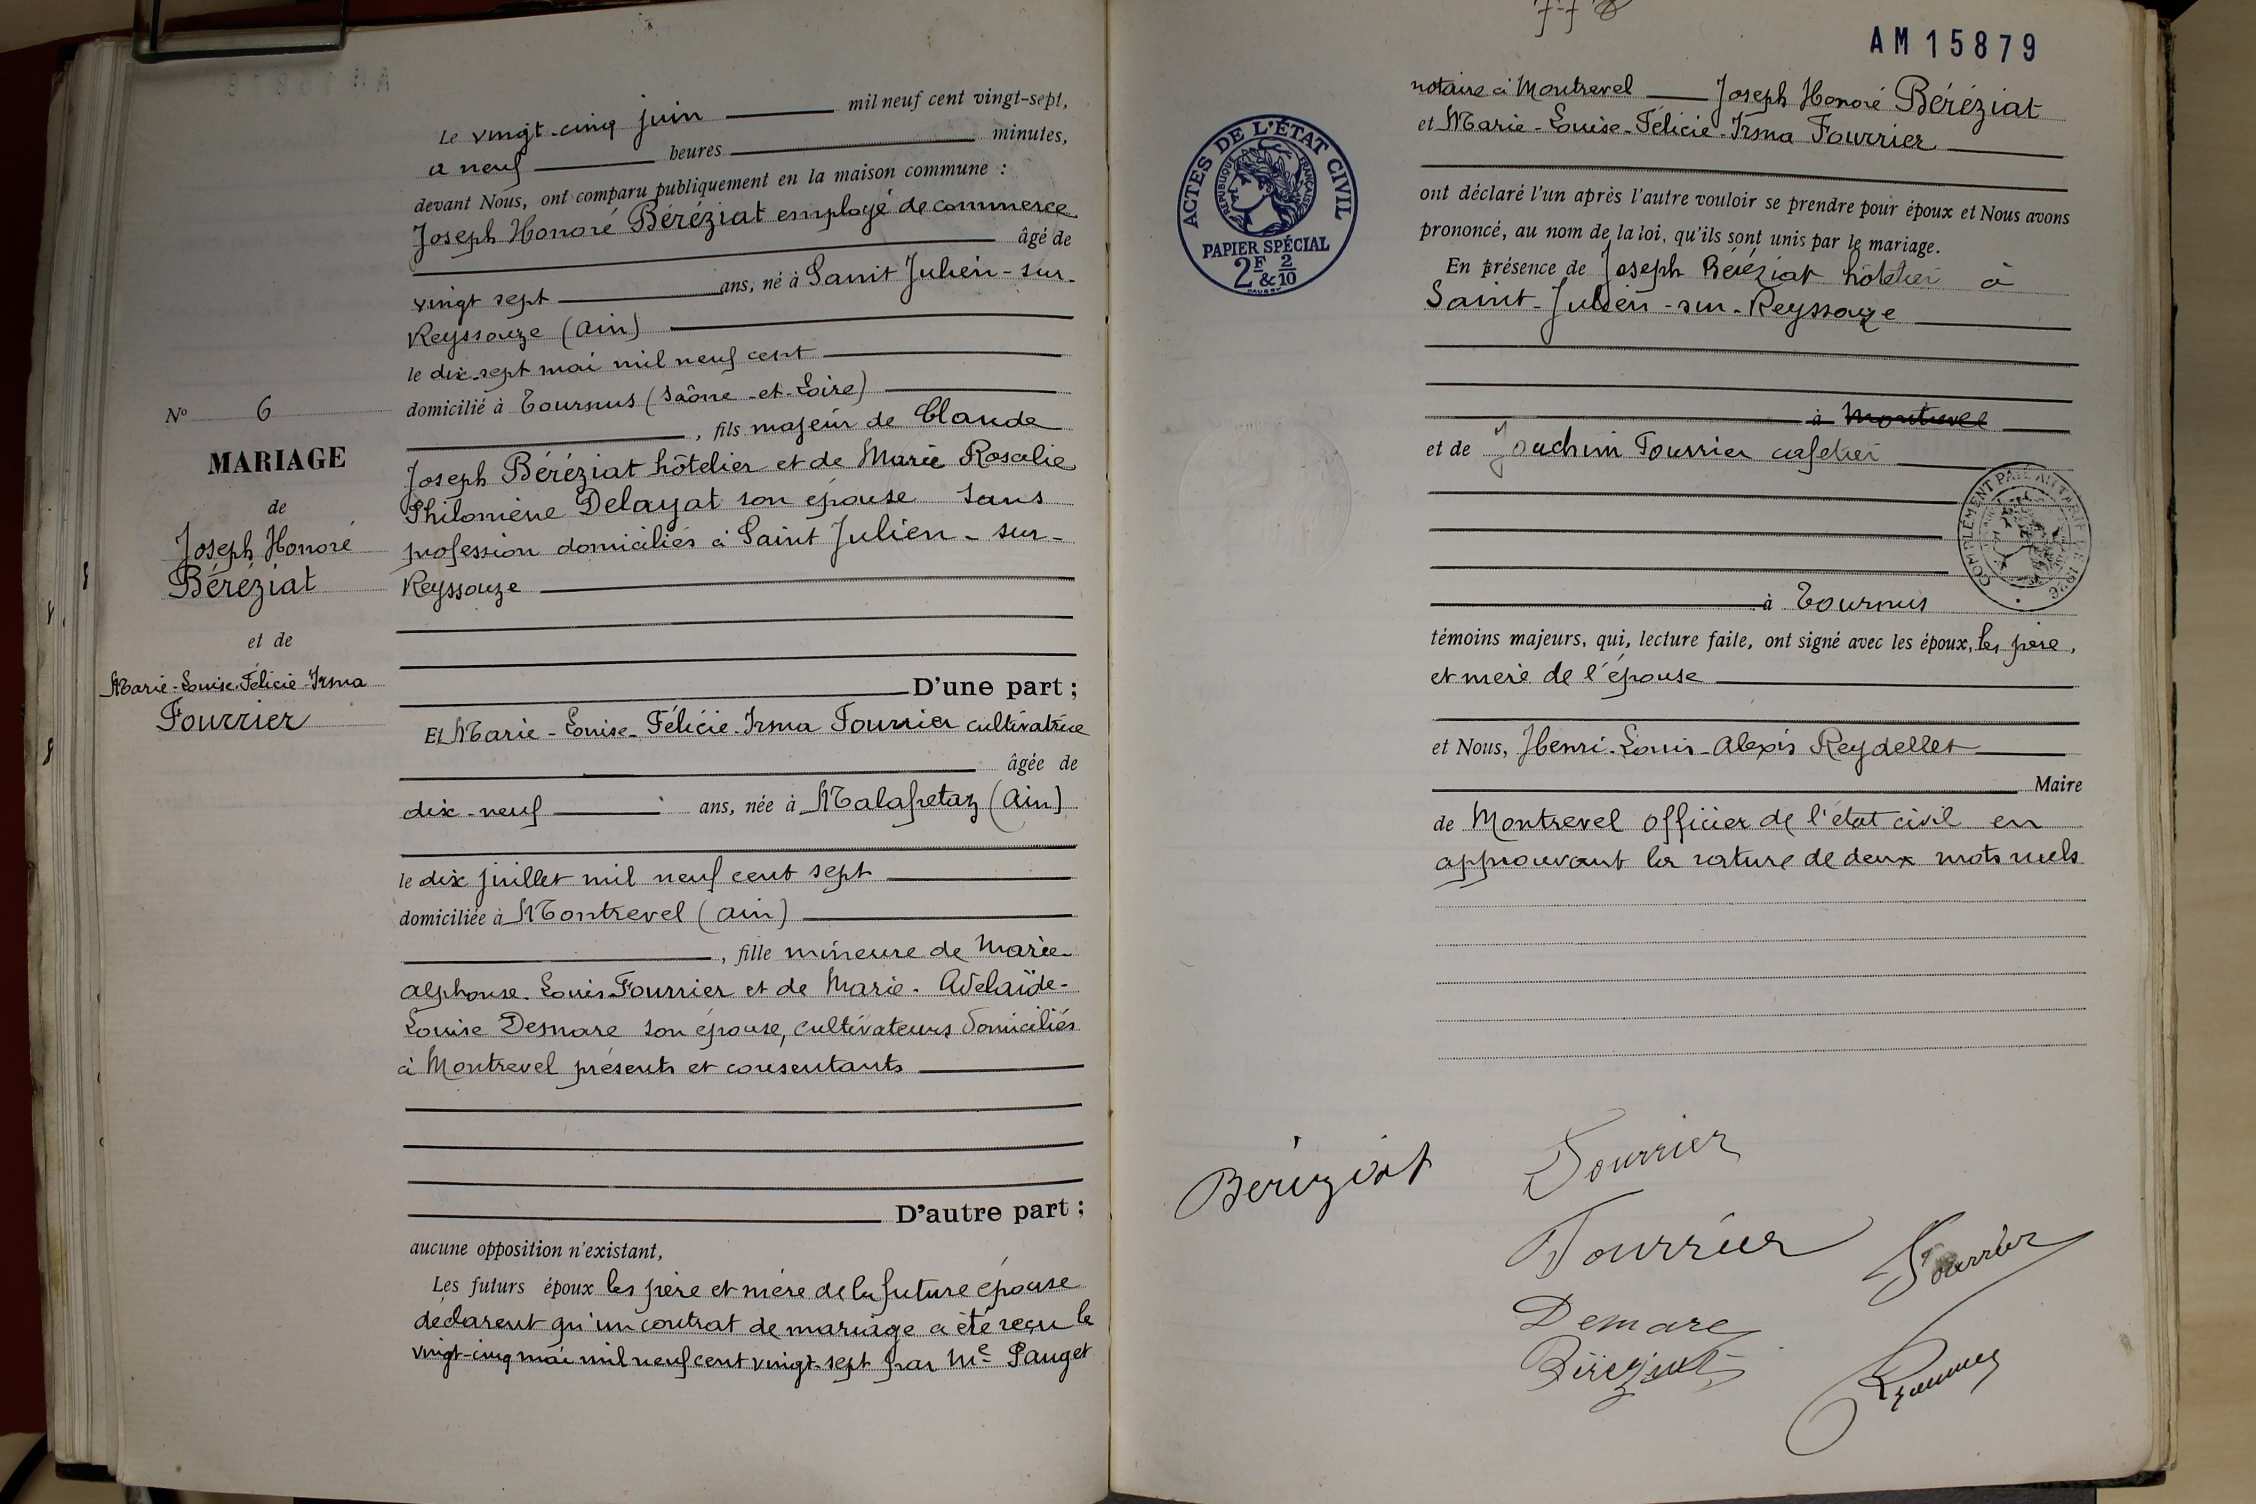 Le vingt-cinq juin mil neuf cent vingt-sept,
a neuf heures minutes,
devant Nous, ont comparu publiquement en la maison commune :
Joseph Honoré Béréziat employé de commerce
âgé de
vingt sept ans, né à Saint Julien-sur-
Reyssouze (Ain)
le dix-sept mai mil neuf cent
domicilié à Tournus (Saône-et-Loire)
, fils majeur de Claude
Joseph Béréziat hôtelier et de Marie Rosalie
Philomène Delayat son épouse sans
profession domiciliés à Saint Julien-sur-
Reyssouze
D'une part ;
Nº 6
MARIAGE
de
Joseph Honoré
Béréziat
et de
Marie-Louise-Félicie-Irma
Fourrier
Et Marie-Louise-Félicie-Irma Fourrier cultivatrice
âgée de
dix-neuf ans, née à Malafretaz (Ain)
le dix juillet mil neuf cent sept
domiciliée à Montrevel (Ain)
, fille mineure de Marie
Alphonse-Louis Fourrier et de Marie-Adelaïde-
Louise Desmare son épouse, cultivateurs domiciliés
à Montrevel présents et consentants
D'autre part ;
aucune opposition n'existant,
Les futurs époux les père et mère de la future épouse
déclarent qu'un contrat de mariage a été reçu le
vingt-cinq mai mil neuf cent vingt-sept par Me Pauget
AM 15879
notaire à Montrevel Joseph Honoré Béréziat
et Marie-Louise-Félicie-Irma Fourrier
ACTES DE L'ÉTAT CIVIL
RÉPUBLIQUE FRANÇAISE
PAPIER SPÉCIAL
2F & 2/10
ont déclaré l'un après l'autre vouloir se prendre pour époux et Nous avons
prononcé, au nom de la loi, qu'ils sont unis par le mariage.
En présence de Joseph Béréziat hôtelier à
Saint-Julien-sur-Reyssouze
à Montrevel
et de Joachim Fourrier cafetier
COMPLÉMENT PAR AU TARIF DE 1926
à Tournus
témoins majeurs, qui, lecture faite, ont signé avec les époux, les père,
et mère de l'épouse
et Nous, Henri-Louis-Alexis Reydellet
Maire
de Montrevel officier de l'état civil en
approuvant la rature de deux mots nuls
Béréziat
Fourrier
Fourrier
Fourrier
Demare
Béréziat